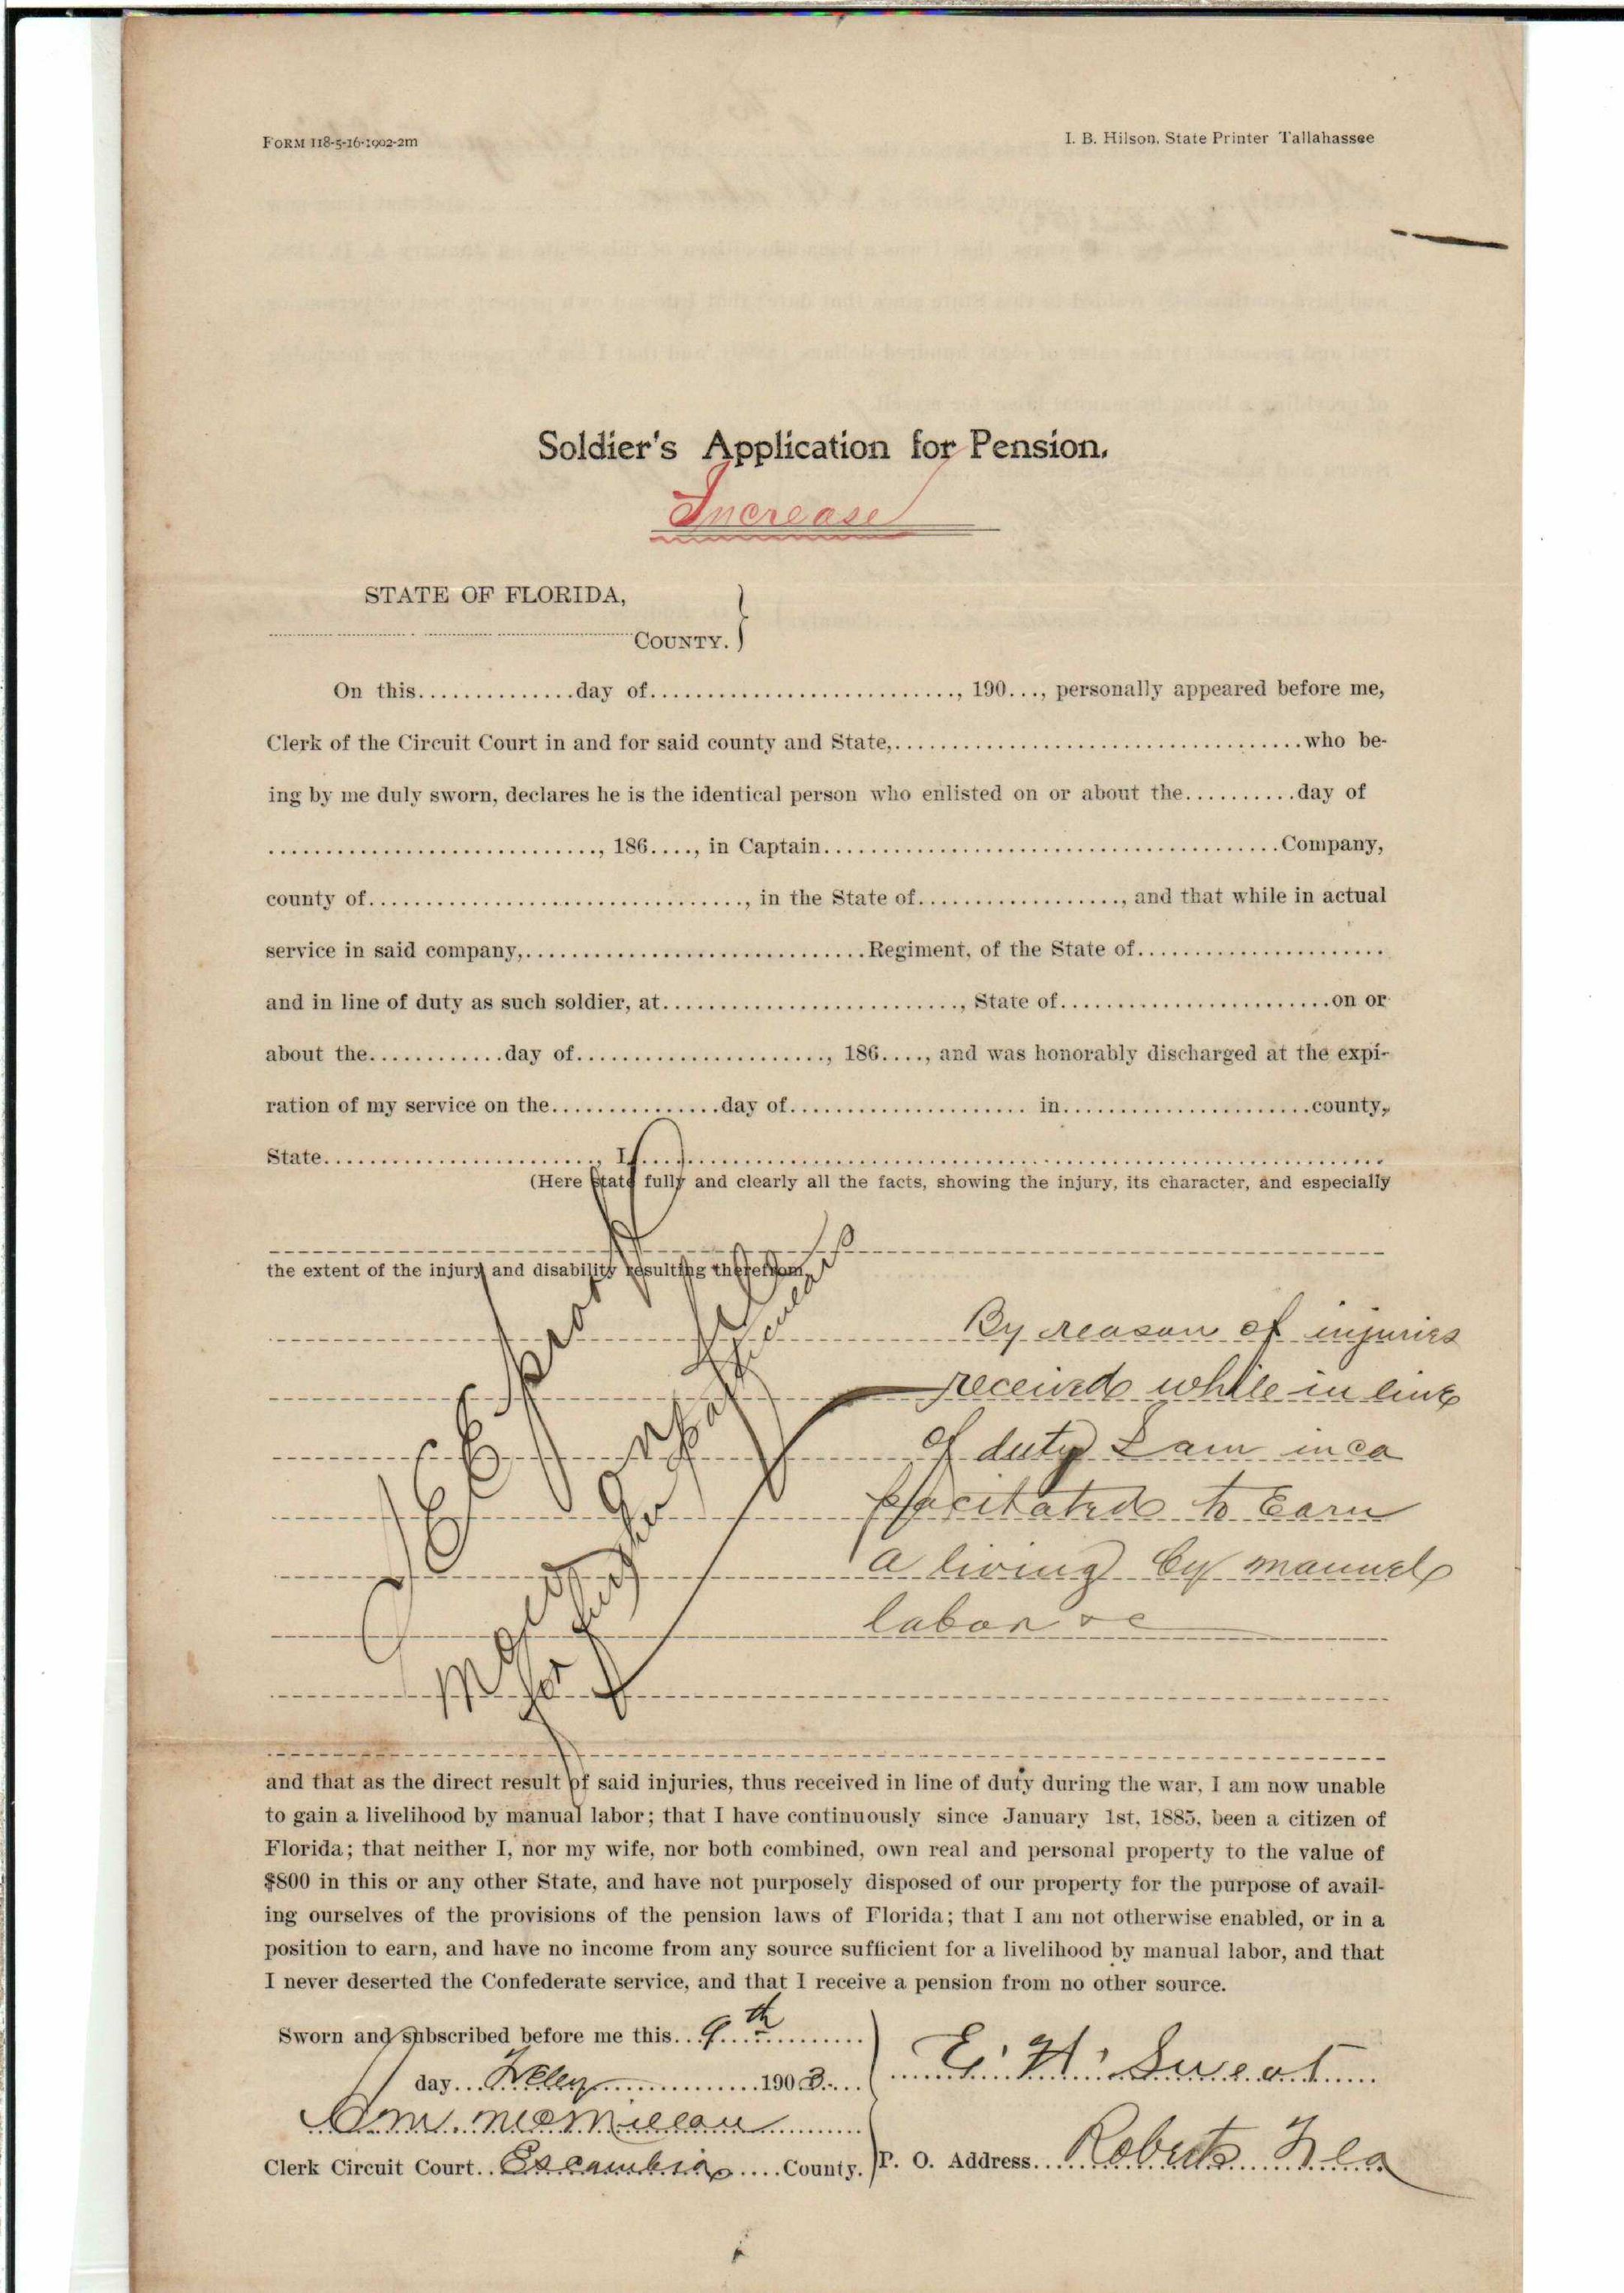 FORM 118-5-16-1902-2m
I. B. Hilson, State Printer Tallahassee
Soldier's Application for Pension.
Increase
STATE OF FLORIDA,
COUNTY.
On this..............day of............................, 190..., personally appeared before me,
Clerk of the Circuit Court in and for said county and State,.....................................who be-
ing by me duly sworn, declares he is the identical person who enlisted on or about the..........day of
.............................., 186...., in Captain.........................................Company,
county of.................................., in the State of..................., and that while in actual
service in said company,...............................Regiment, of the State of......................
and in line of duty as such soldier, at..........................., State of........................on or
about the............day of......................., 186...., and was honorably discharged at the expi-
ration of my service on the...............day of..................... in......................county,
State........................., I
(Here state fully and clearly all the facts, showing the injury, its character, and especially
the extent of the injury and disability resulting therefrom,
See
for
By reason of injuries
received while in line
of duty I am inca
pacitated to Earn
a living by manuel
labor &c
and that as the direct result of said injuries, thus received in line of duty during the war, I am now unable
to gain a livelihood by manual labor; that I have continuously since January 1st, 1885, been a citizen of
Florida; that neither I, nor my wife, nor both combined, own real and personal property to the value of
$800 in this or any other State, and have not purposely disposed of our property for the purpose of avail-
ing ourselves of the provisions of the pension laws of Florida; that I am not otherwise enabled, or in a
position to earn, and have no income from any source sufficient for a livelihood by manual labor, and that
I never deserted the Confederate service, and that I receive a pension from no other source.
Sworn and subscribed before me this..9th
day.. Feby 1903
E. H. Sweat
A. M. McMillan
Clerk Circuit Court.. Escambia ....County.
P. O. Address.. Roberts Fla